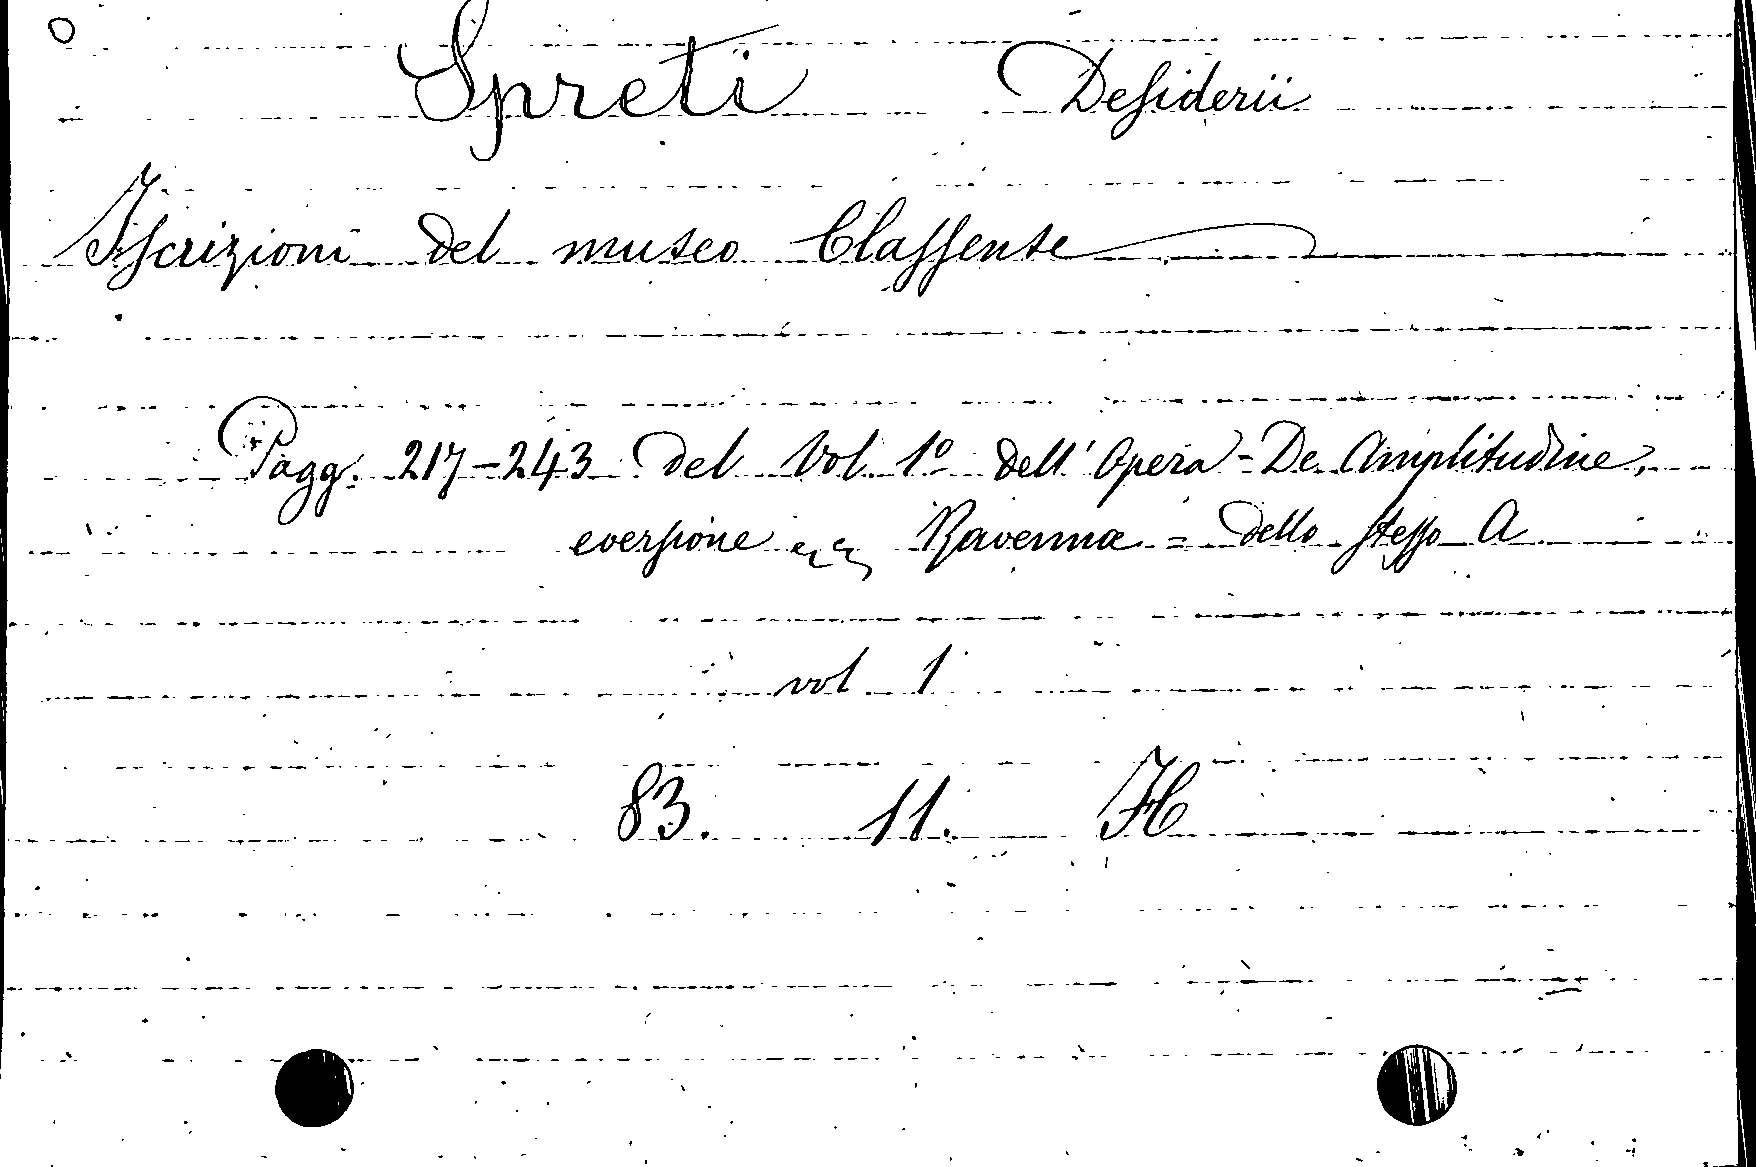 Spreti Desiderii
Iscrizioni del museo Classense
Pagg. 217-243 del Vol. 1º dell'Opera - De Amplitudine,
eversione Ravennæ = dello stesso A
vol 1
83. 11. H